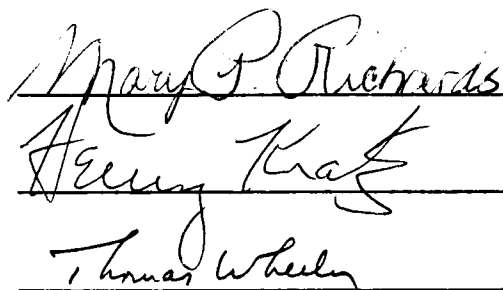 Mary P. Richards
Henry Kratz
Thomas Wheeler